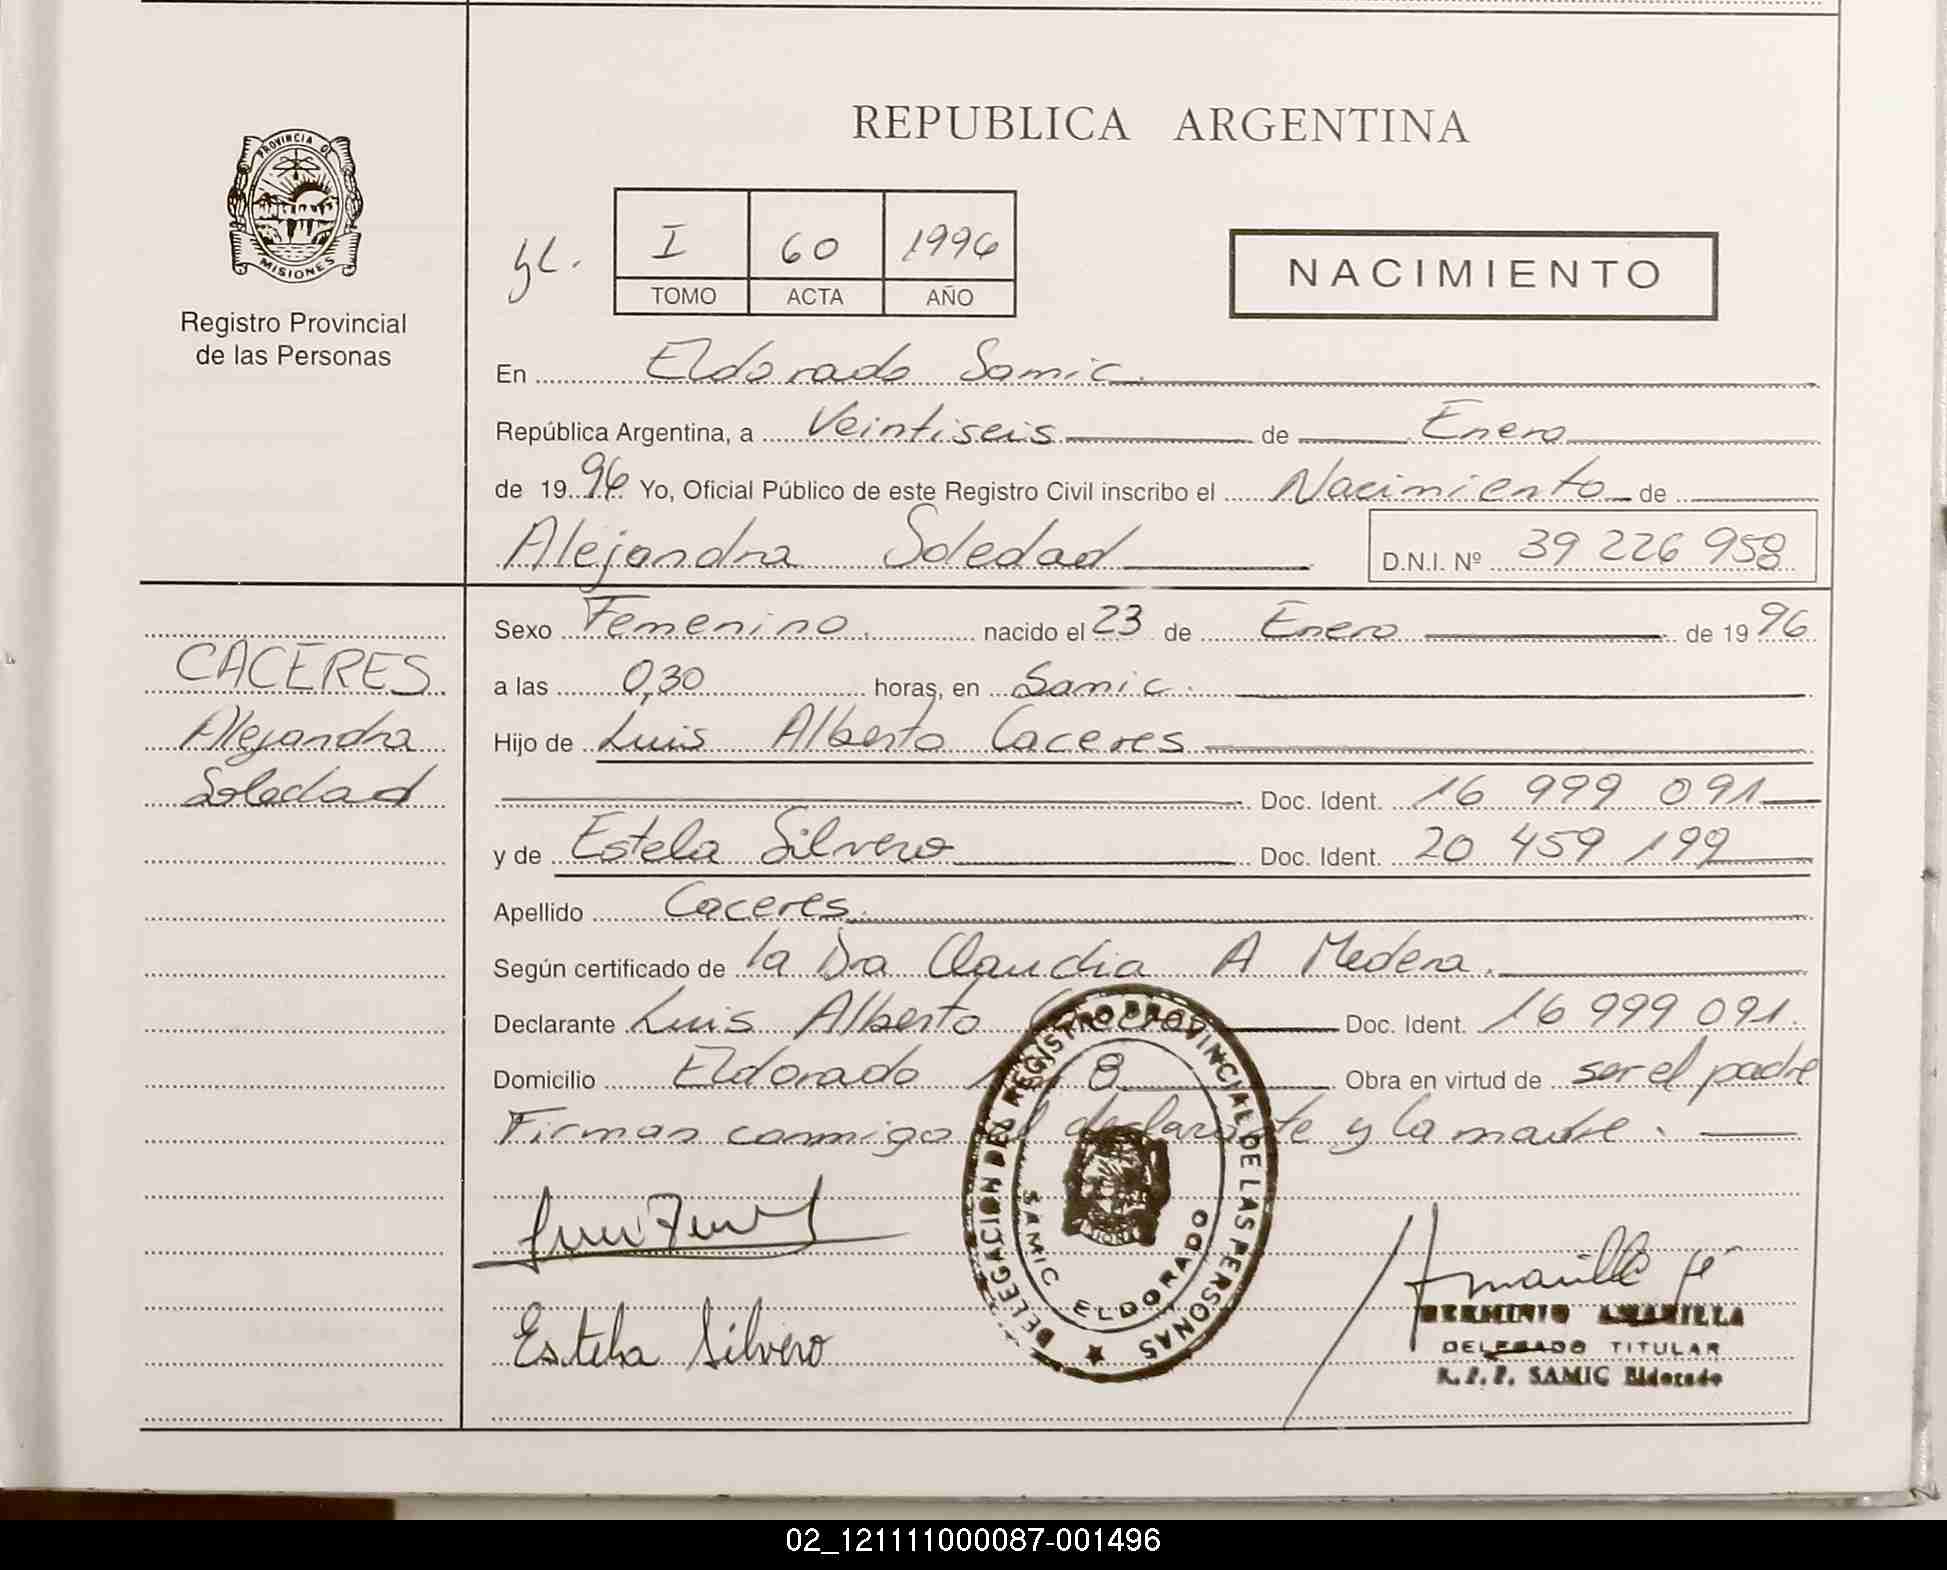 REPUBLICA ARGENTINA
PROVINCIA DE
MISIONES
Registro Provincial
de las Personas
I 60 1996
TOMO ACTA AÑO
NACIMIENTO
En Eldorado Samic.
República Argentina, a Veintiseis de Enero
de 1996 Yo, Oficial Público de este Registro Civil inscribo el Nacimiento de
Alejandra Soledad D.N.I. Nº 39 226 958
CACERES
Alejandra
Soledad
Sexo Femenino. nacido el 23 de Enero de 1996
a las 0,30 horas, en Samic.
Hijo de Luis Alberto Caceres
Doc. Ident. 16 999 091
y de Estela Silvero Doc. Ident. 20 459 199
Apellido Caceres.
Según certificado de la Dra Claudia A Medera.
Declarante Luis Alberto Doc. Ident. 16 999 091.
Domicilio Eldorado 8 Obra en virtud de ser el padre
Firman conmigo el declarante y la madre.
Estela Silvero
DELEGACION DEL REGISTRO PROVINCIAL DE LAS PERSONAS
SAMIC ELDORADO
Amarilla
HERMINIO AMARILLA
DELEGADO TITULAR
R. P. P. SAMIC Eldorado
02_121111000087-001496